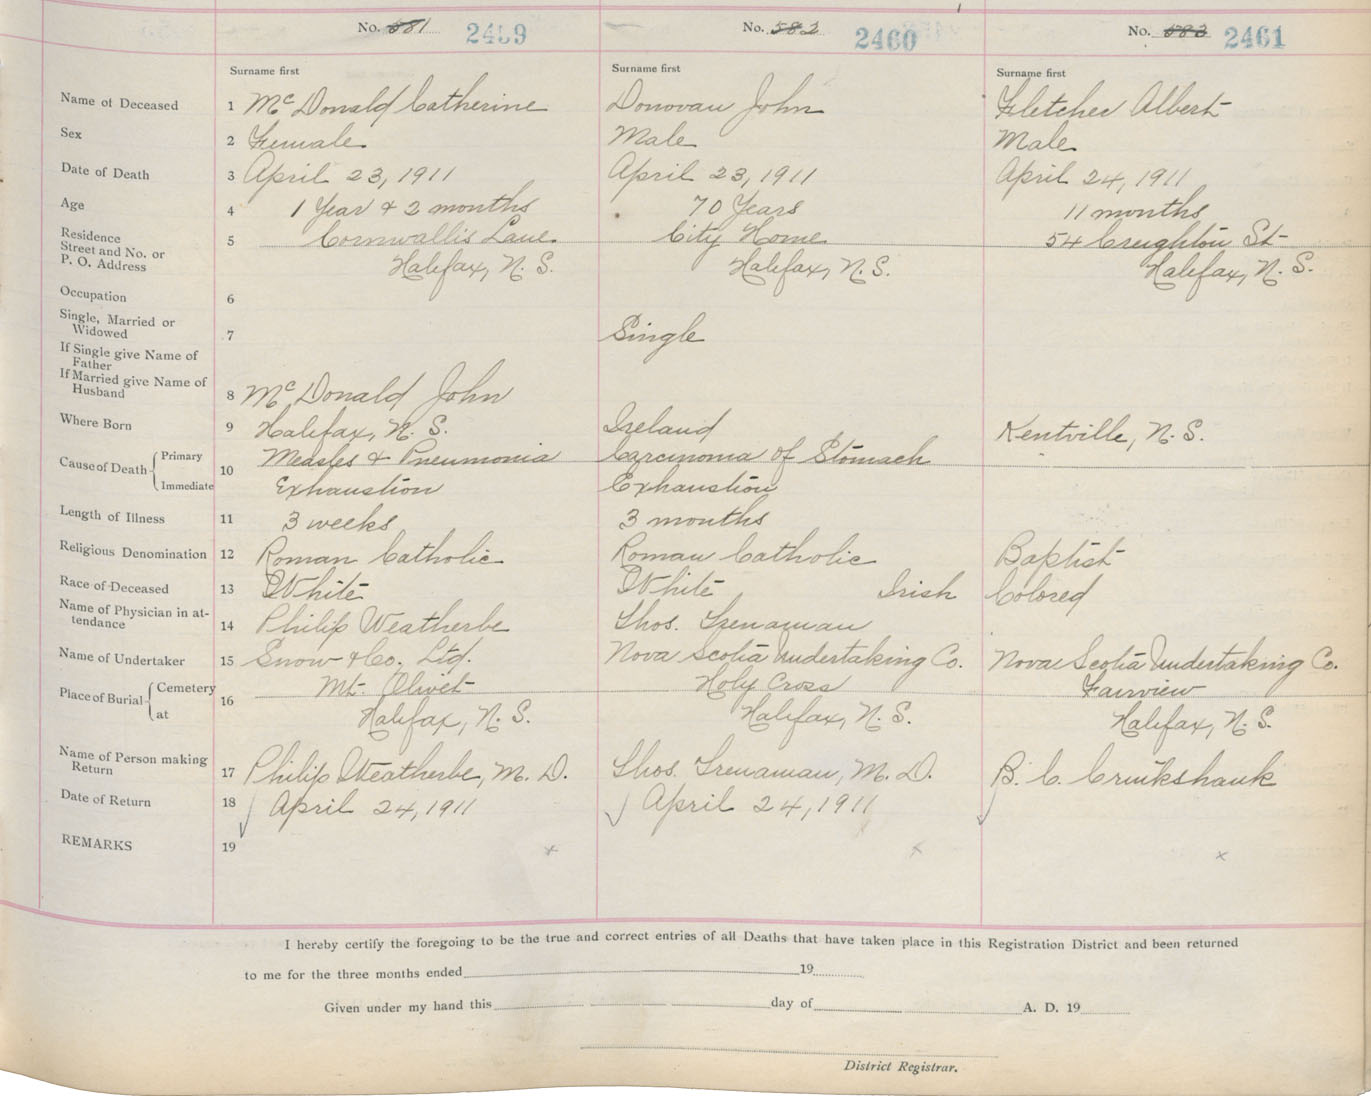 No. 581 2459 No. 582 2460 No. 583 2461
Surname first Surname first Surname first
Name of Deceased 1 McDonald Catherine Donovan John Fletcher Albert
Sex 2 Female Male Male
Date of Death 3 April 23, 1911 April 23, 1911 April 24, 1911
Age 4 1 Year & 2 months 70 Years 11 months
Residence 5 Cornwallis Lane City Home 54 Creighton St
Street and No. or
P. O. Address Halifax, N. S. Halifax, N. S. Halifax, N. S.
Occupation 6
Single, Married or
Widowed 7 Single
If Single give Name of
Father
If Married give Name of
Husband 8 McDonald John
Where Born 9 Halifax, N. S. Ireland Kentville, N. S.
Cause of Death Primary 10 Measles & Pneumonia Carcinoma of Stomach
Immediate Exhaustion Exhaustion
Length of Illness 11 3 weeks 3 months
Religious Denomination 12 Roman Catholic Roman Catholic Baptist
Race of Deceased 13 White White Irish Colored
Name of Physician in at-
tendance 14 Philip Weatherbe Thos. Trenaman
Name of Undertaker 15 Snow & Co. Ltd. Nova Scotia Undertaking Co. Nova Scotia Undertaking Co.
Place of Burial Cemetery 16 Mt. Olivet Holy Cross Fairview
at Halifax, N. S. Halifax, N. S. Halifax, N. S.
Name of Person making
Return 17 Philip Weatherbe, M. D. Thos. Trenaman, M. D. B. C. Cruikshank
Date of Return 18 April 24, 1911 April 24, 1911
REMARKS 19 x x x
I hereby certify the foregoing to be the true and correct entries of all Deaths that have taken place in this Registration District and been returned
to me for the three months ended 19
Given under my hand this day of A. D. 19
District Registrar.